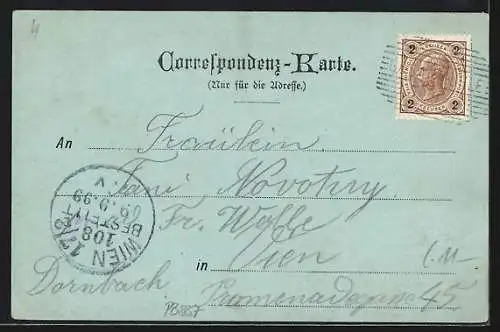 4
Correspondenz-Karte.
(Nur für die Adresse.)
2 2
2 2
An Fräulein
Fani Novotny
Fr. Wolfe
in Wien
Dornbach Promenadegasse 45
WIEN 17/3
108
BESTELLT
9.99
V.